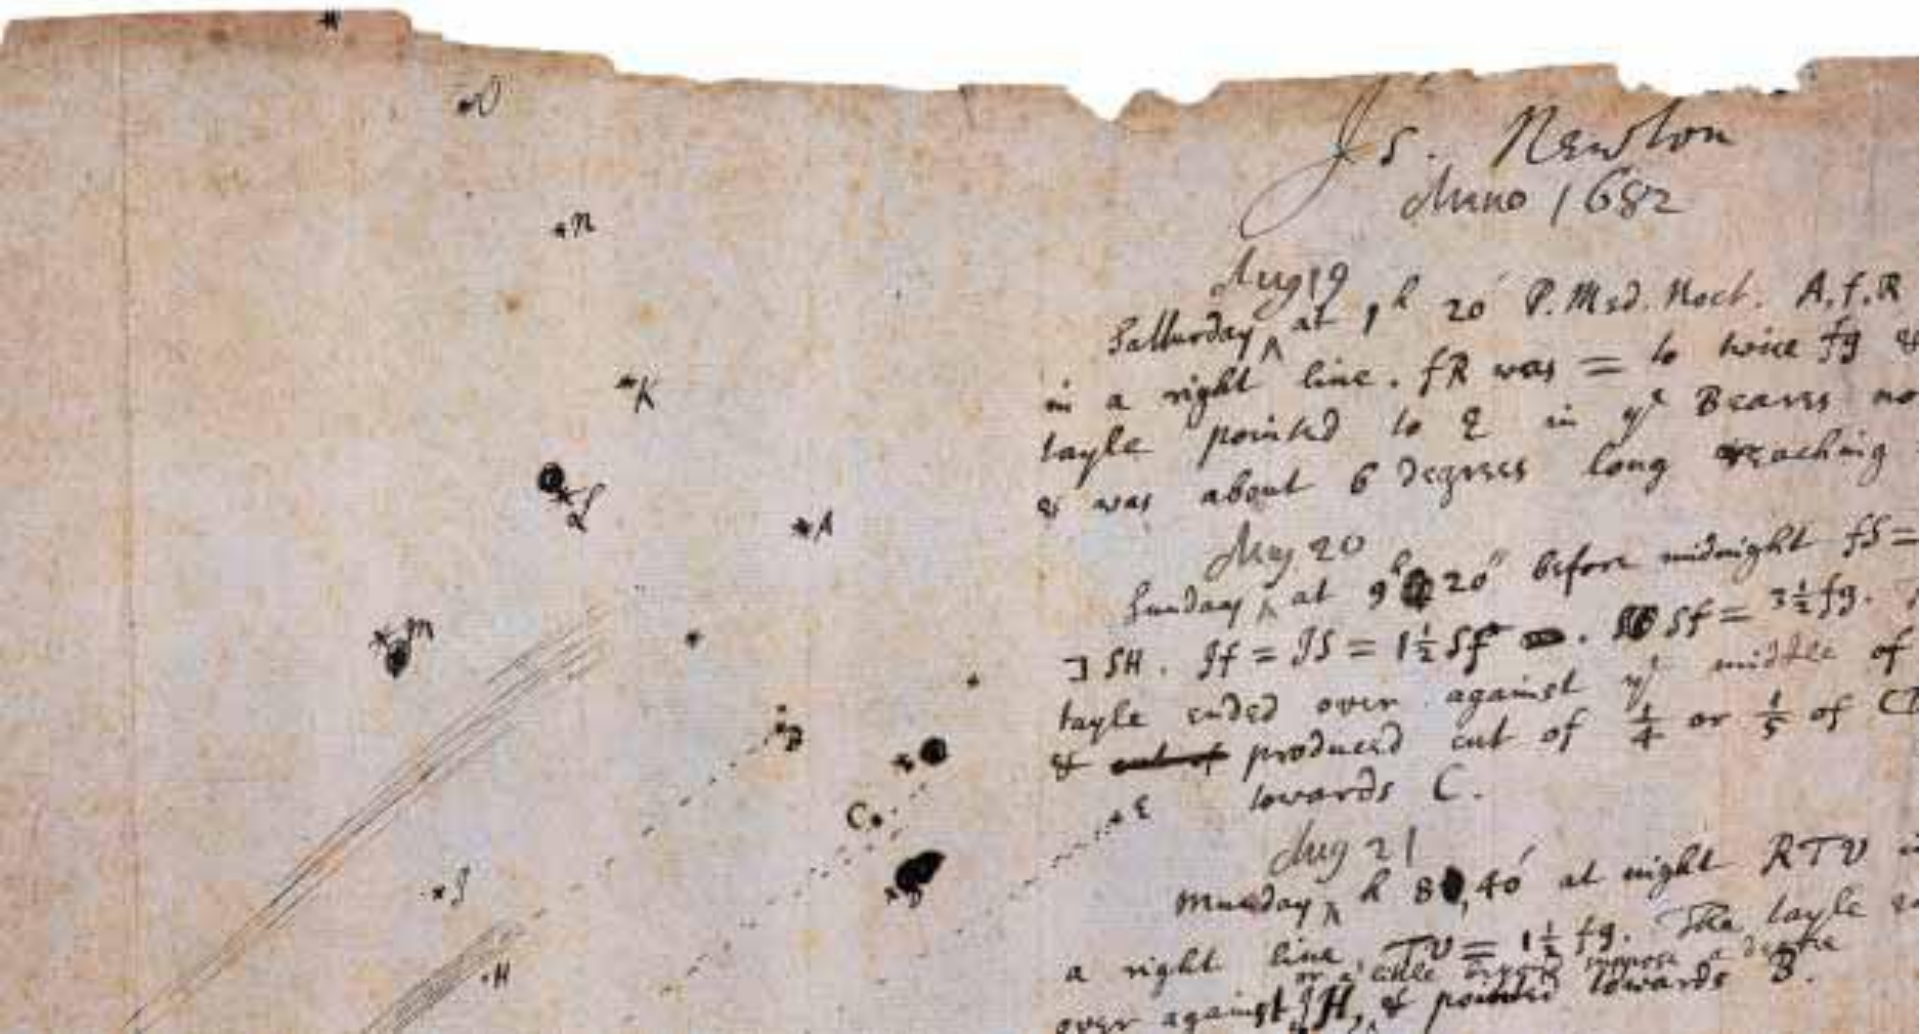 O
n
K
L
A
M
D
C
E
B
I
H
Is. Newton
Anno 1682
Aug 19
Satturday ^ at 1h 20' P. Med. Noct. A, f, R
in a right line. fR was = to twice fg &
tayle pointed to in ye Beares no
& was about 6 degrees long reaching
Aug 20
Sunday ^ at 9h 20' before midnight fS =
SH. If = IS = 1½ Sf. Sf = 3½ fg.
tayle ended over against ye middle of
& out of produced cut of ¼ or ⅕ of
towards C.
Aug 21
Munday ^ h 8, 40' at night RTV
a right line, TV = 1½ fg. The tayle
or a little suppose a degree
over against IH, & pointed towards B.